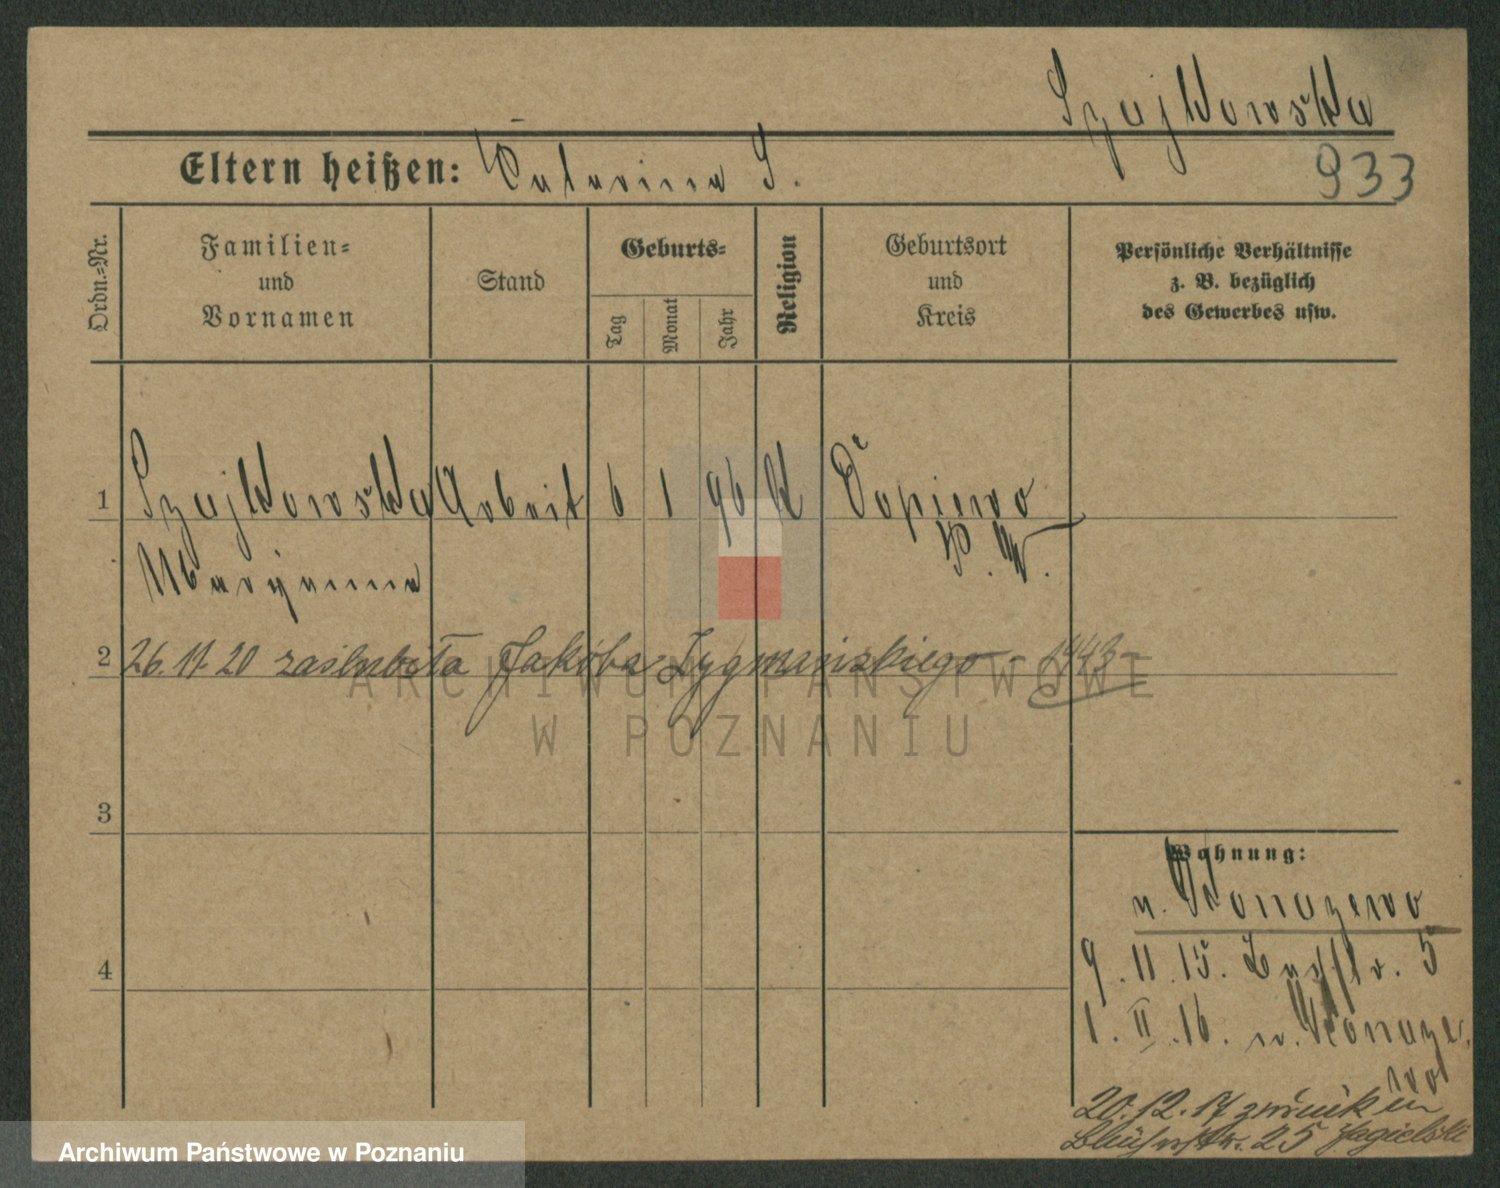 Szajkowska
Eltern heißen: Katarina S.
933
Ordn.=Nr.
Familien=
und
Vornamen
Stand
Geburts=
Tag
Monat
Jahr
Religion
Geburtsort
und
Kreis
Persönliche Verhältnisse
z. B. bezüglich
des Gewerbes usw.
1 Szajkowska Arbeit 6 1 96 K Dopiewo
Maryanna P. W.
2 26.11.20 zaślubiła Jakóba Zygmańskiego - 1443 -
ARCHIWUM PAŃSTWOWE
W POZNANIU
3
4
Wohnung:
n. Konazewo
9.11.15. 5
1.II.16. n. Konaze
wo
20.12.17 zurück in
25 Jagielski
Archiwum Państwowe w Poznaniu